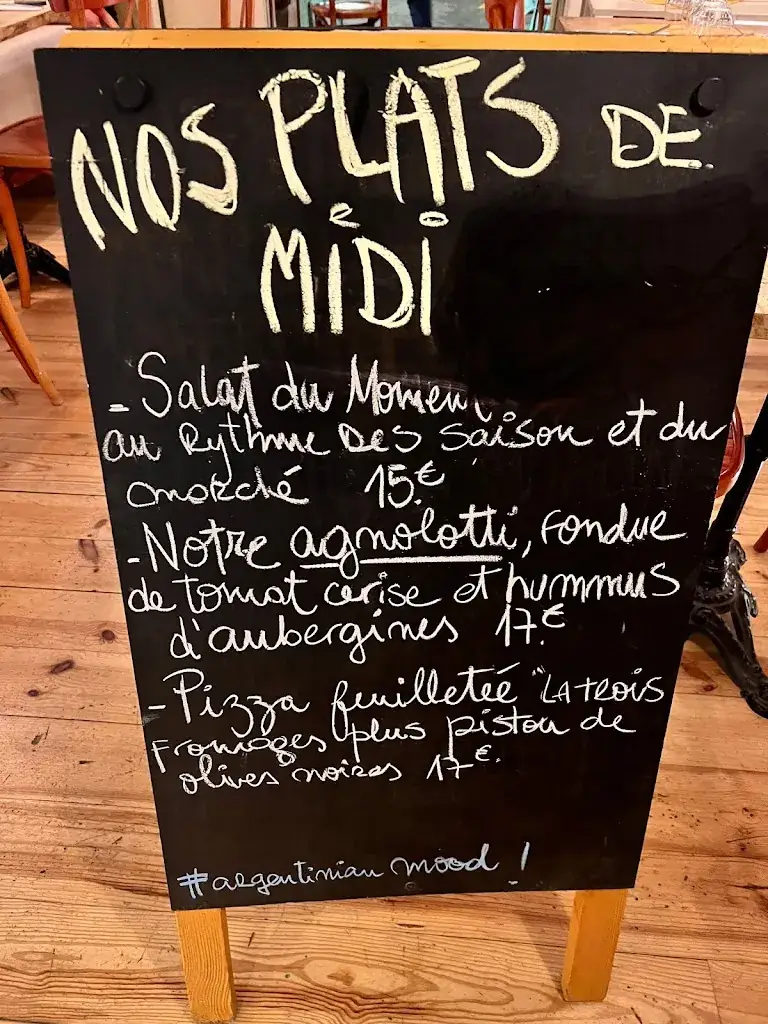 NOS PLATS DE
MIDI
- Salat du Moment
au Rythme Des saison et du
marché 15.€
- Notre agnolotti, fondue
de tomat cerise et hummus
d'aubergines 17.€
- Pizza feuilleteé "LA TROIS
Fromages plus piston de
olives noires 17€.
#argentinian mood !